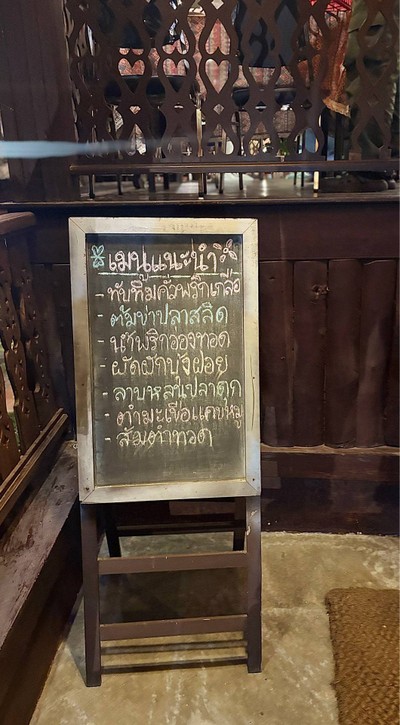 เมนูแนะนำ
- ทับทิมคั่วพริกเกลือ
- ต้มข่าปลาสลิด
- น้ำพริกอ่องทอด
- ผัดผักบุ้งฝอย
- ลาบหลนปลาดุก
- ตำมะเขือแคบหมู
- ส้มตำทอด